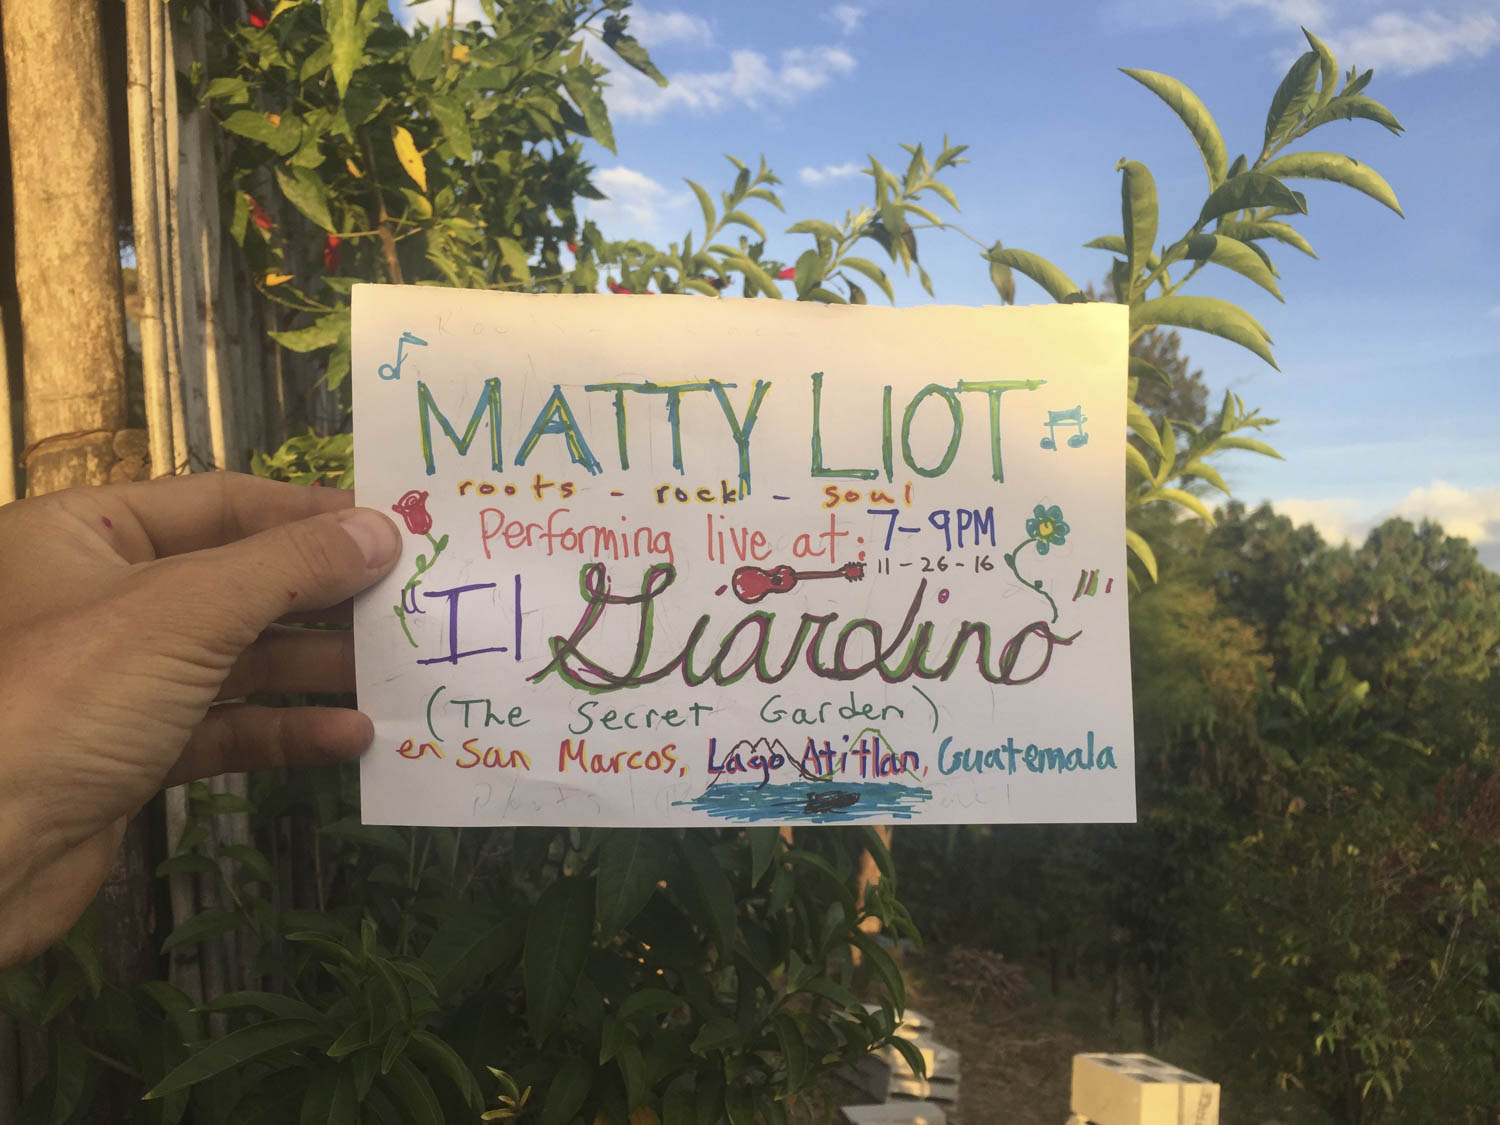 MATTY LIOT
roots - rock - soul
Performing live at: 7-9PM
11-26-16
"Il Giardino"
(The Secret Garden)
en San Marcos, Lago Atitlan, Guatemala